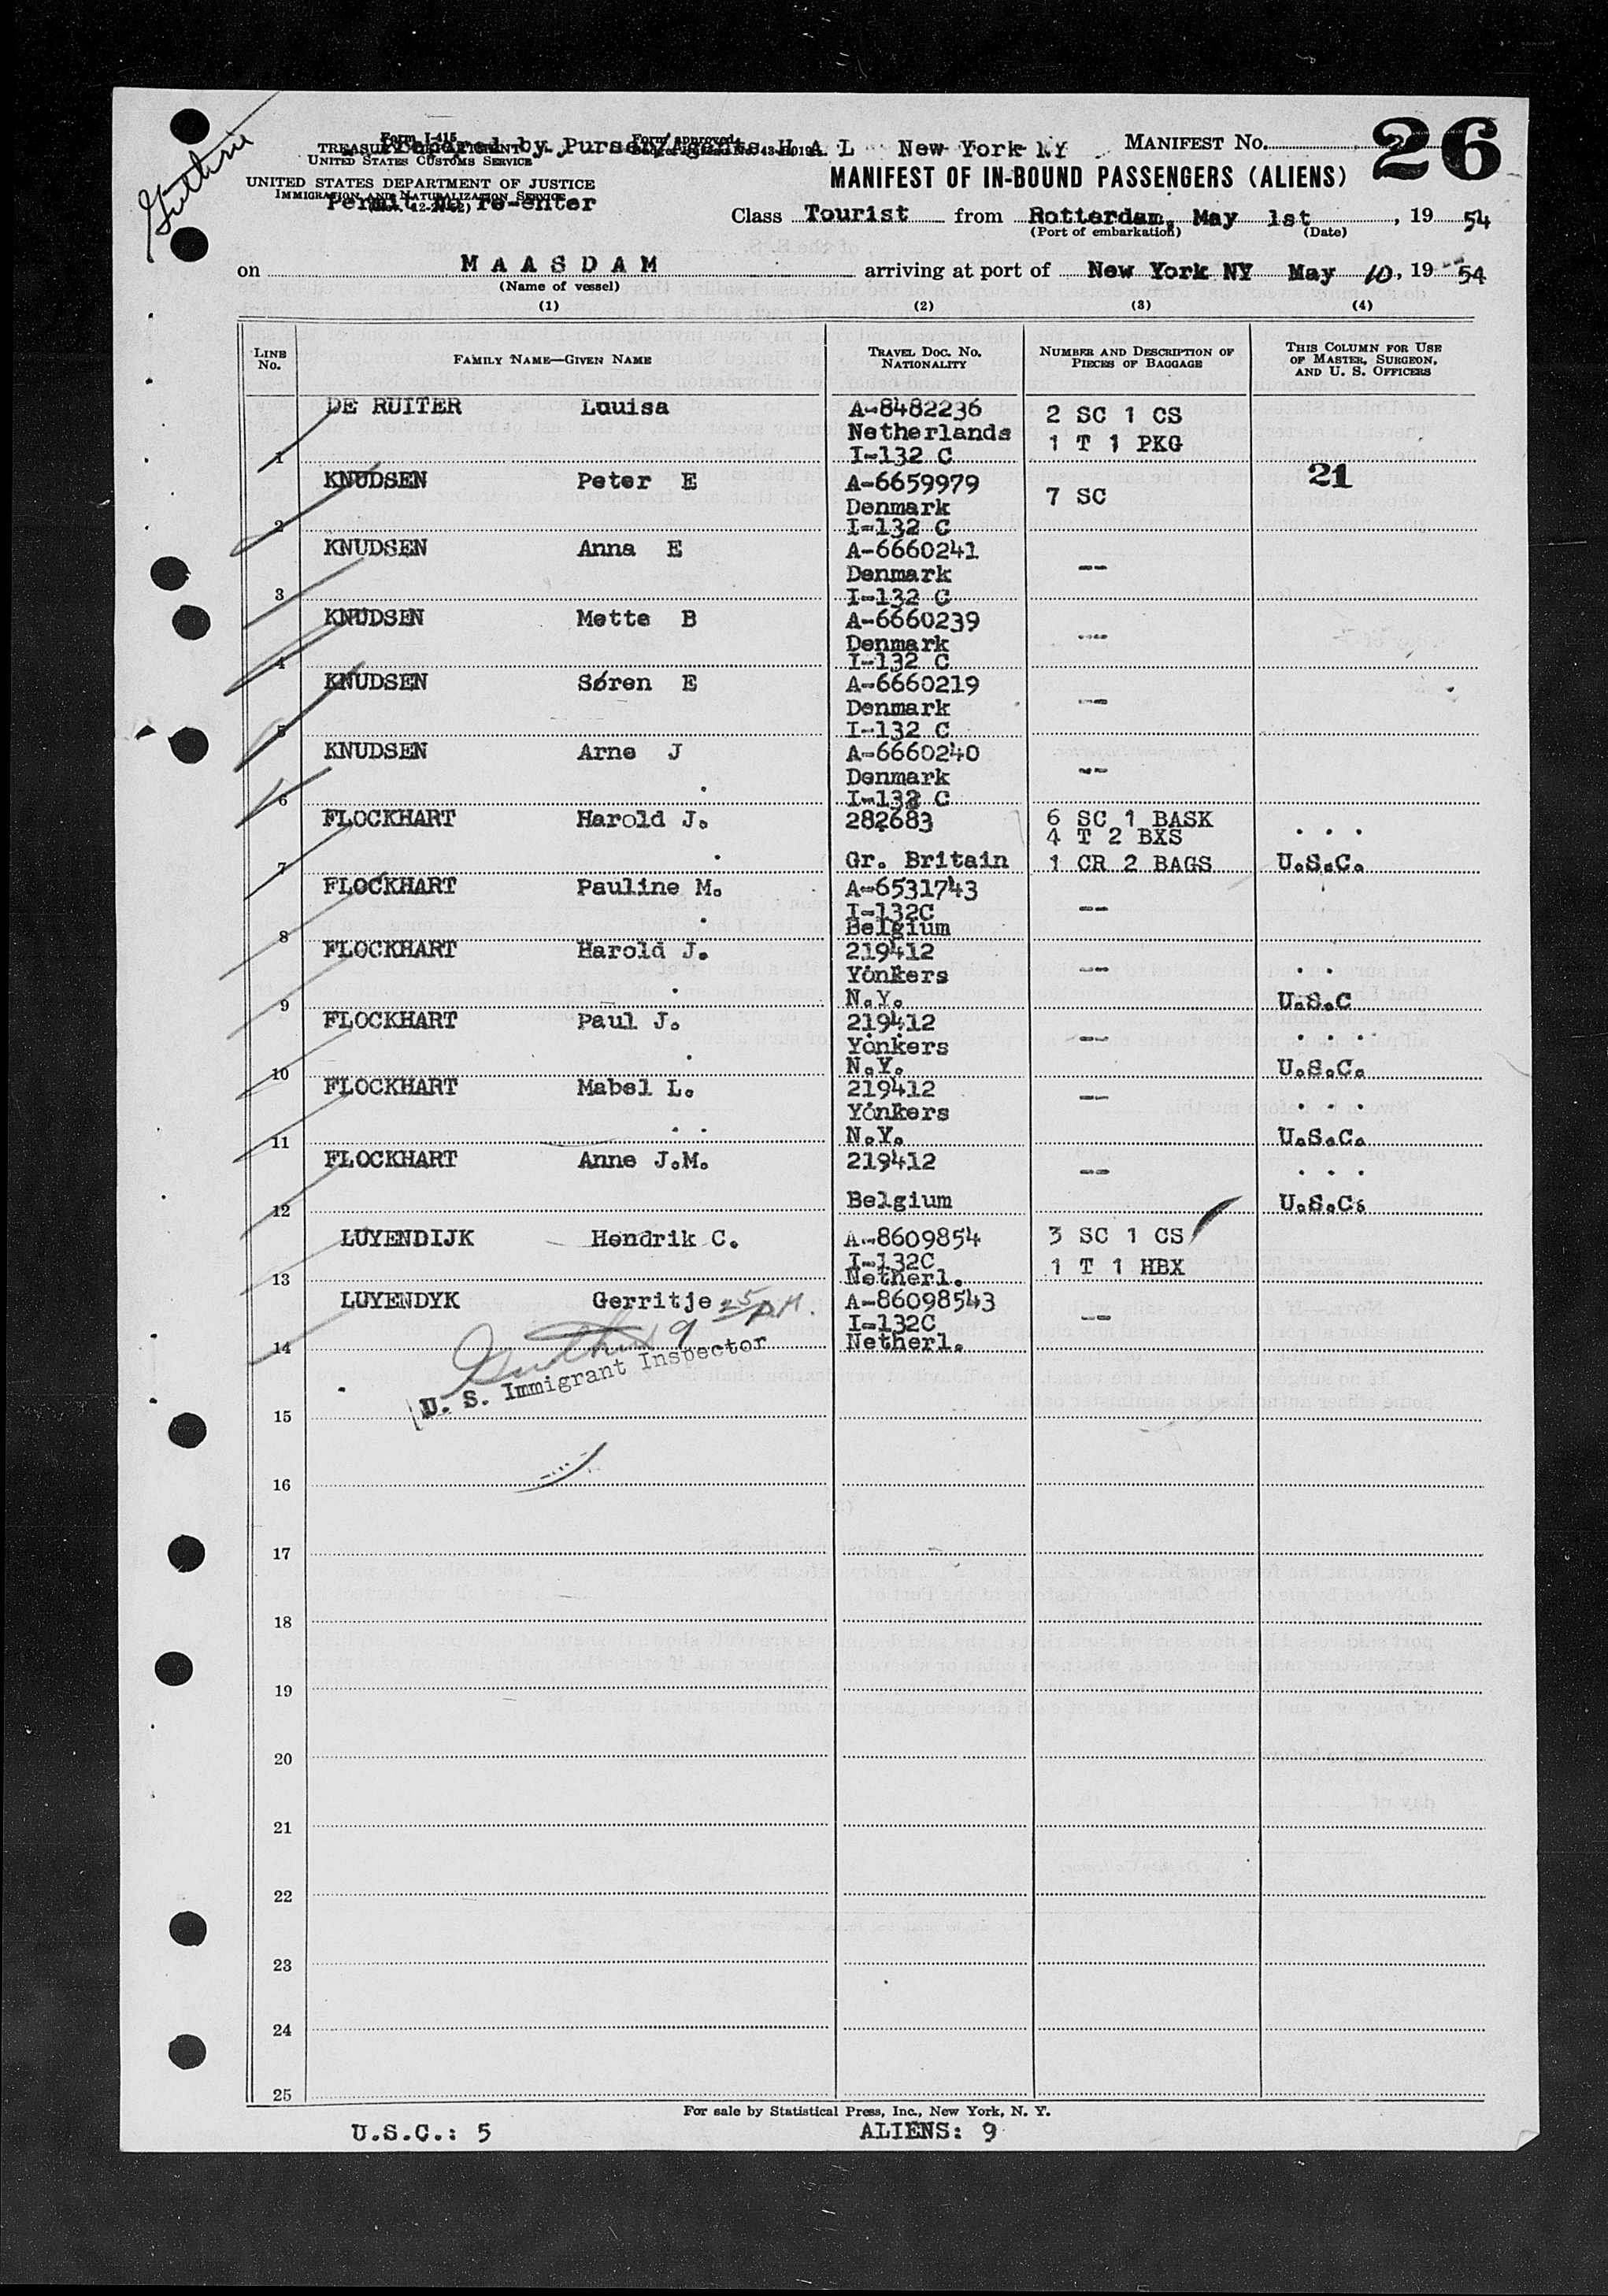 Guthrie
Form I-415
TREASURY DEPARTMENT
UNITED STATES CUSTOMS SERVICE
Prepared by Purser/Agents H A L New York NY
Form approved.
MANIFEST NO. 26
UNITED STATES DEPARTMENT OF JUSTICE
IMMIGRATION AND NATURALIZATION SERVICE
Permit to re-enter
MANIFEST OF IN-BOUND PASSENGERS (ALIENS)
Class Tourist from Rotterdam, May 1st, 19 54
(Port of embarkation) (Date)
on MAASDAM arriving at port of New York NY May 10, 19 54
(Name of vessel)
(1) (2) (3) (4)
LINE No. FAMILY NAME—GIVEN NAME TRAVEL DOC. NO. NATIONALITY NUMBER AND DESCRIPTION OF PIECES OF BAGGAGE THIS COLUMN FOR USE OF MASTER, SURGEON, AND U. S. OFFICERS
DE RUITER Louisa A-8482236 2 SC 1 CS
Netherlands 1 T 1 PKG
1 I-132 C
KNUDSEN Peter E A-6659979 21
Denmark 7 SC
2 I-132 C
KNUDSEN Anna E A-6660241
Denmark --
3 I-132 C
KNUDSEN Mette B A-6660239
Denmark --
4 I-132 C
KNUDSEN Søren E A-6660219
Denmark --
5 I-132 C
KNUDSEN Arne J A-6660240
Denmark --
6 I-132 C
FLOCKHART Harold J. 282683 6 SC 1 BASK
4 T 2 BXS . . .
7 Gr. Britain 1 CR 2 BAGS U.S.C.
FLOCKHART Pauline M. A-6531743
I-132C --
8 Belgium
FLOCKHART Harold J. 219412
Yonkers -- . .
9 N.Y. U.S.C
FLOCKHART Paul J. 219412
Yonkers -- . . .
10 N.Y. U.S.C.
FLOCKHART Mabel L. 219412
Yonkers -- . . .
11 N.Y. U.S.C.
FLOCKHART Anne J.M. 219412 -- . . .
12 Belgium U.S.C.
LUYENDIJK Hendrik C. A-8609854 3 SC 1 CS
I-132C 1 T 1 HBX
13 Netherl.
LUYENDYK Gerritje A-86098543
I-132C --
14 Netherl.
Guthrie 9 25 PM.
U. S. Immigrant Inspector
15
16
17
18
19
20
21
22
23
24
25
For sale by Statistical Press, Inc., New York, N. Y.
U.S.C.: 5 ALIENS: 9